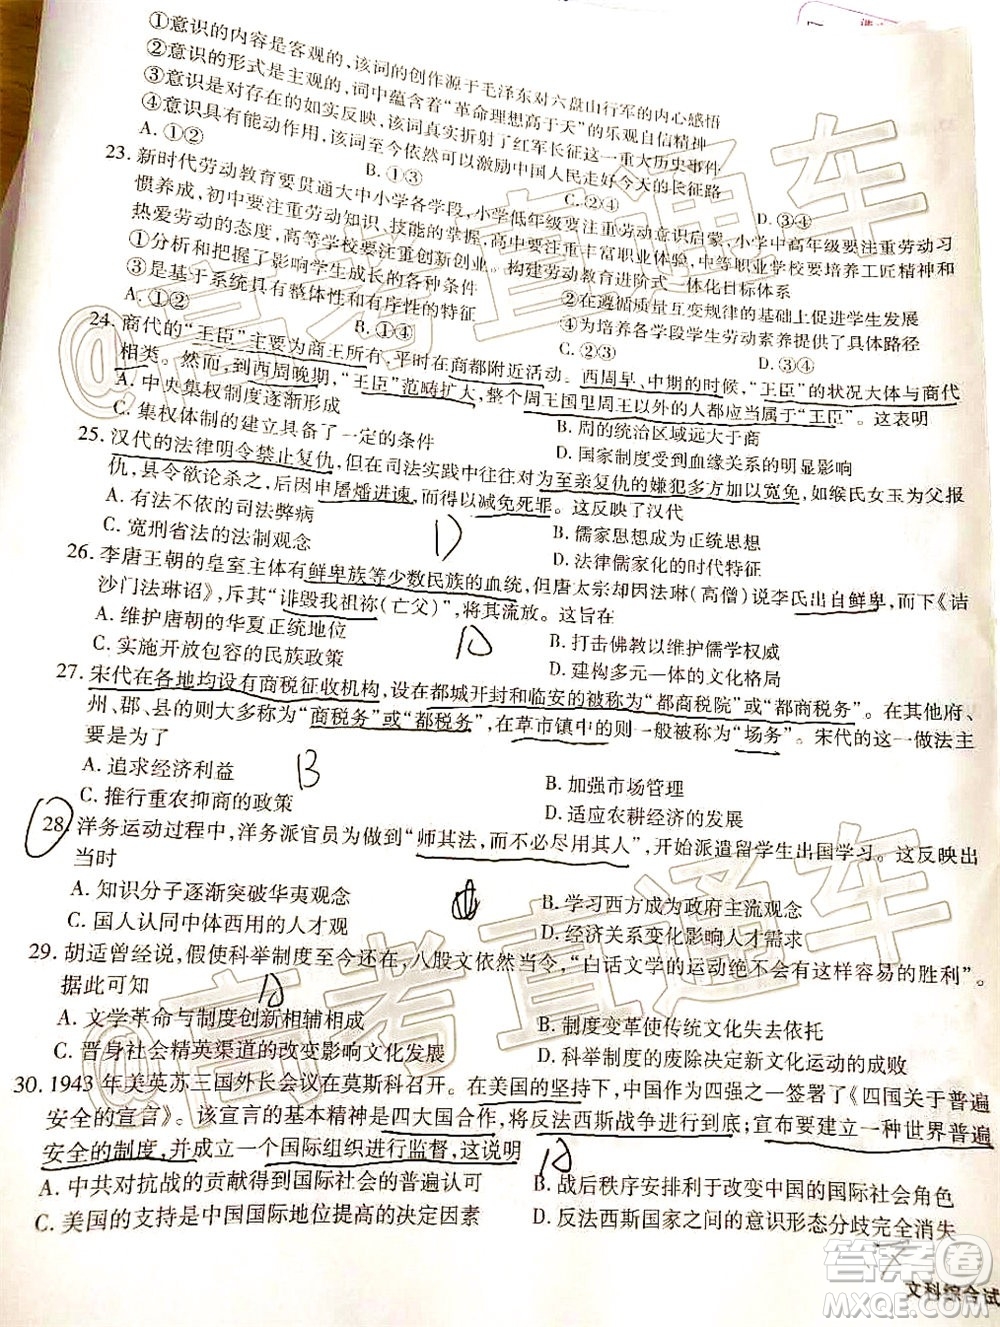 ①意识的内容是客观的，该词的创作源于毛泽东对六盘山行军的内心感悟
②意识的形式是主观的，词中蕴含着“革命理想高于天”的乐观自信精神
③意识是对存在的如实反映，该词真实折射了红军长征这一重大历史事件
④意识具有能动作用，该词至今依然可以激励中国人民走好今天的长征路
A. ①② B. ①③ C. ②④ D. ③④
23. 新时代劳动教育要贯通大中小学各学段，小学低年级要注重劳动意识启蒙，小学中高年级要注重劳动习
惯养成，初中要注重劳动知识、技能的掌握，高中要注重职业体验，中等职业学校要培养工匠精神和
热爱劳动的态度，高等学校要注重创新创业。构建劳动教育进阶式一体化目标体系
①分析和把握了影响学生成长的各种条件 ②在遵循质量互变规律的基础上促进学生发展
③基于系统具有整体性和有序性的特征 ④为培养各学段学生劳动素养提供具体路径
A. ①② B. ①④ C. ②③ D. ③④
24. 商代的“王臣”主要为商王所有，平时在商都附近活动。西周早、中期的时候，“王臣”的状况大体与商代
相类。然而，到西周晚期，“王臣”范畴扩大，整个周王国里周王以外的人都应当属于“王臣”。这表明
A. 中央集权制度逐渐形成 B. 周的统治区域远大于商
C. 集权体制的建立具备了一定的条件 D. 国家制度受到血缘关系的明显影响
25. 汉代的法律明令禁止复仇，但在司法实践中往往对为至亲复仇的嫌犯多方加以宽免，如缑氏女玉为父报
仇，县令欲论杀之，后因申屠燔进谏，而得以减免死罪。这反映了汉代
A. 有法不依的司法弊病 B. 儒家思想成为正统思想
C. 宽刑省法的法制观念 D. 法律儒家化的时代特征
D
26. 李唐王朝的皇室主体有鲜卑族等少数民族的血统，但唐太宗却因法琳(高僧)说李氏出自鲜卑，而下《诘
沙门法琳诏》，斥其“诽毁我祖祢(亡父)”，将其流放。这旨在
A. 维护唐朝的华夏正统地位 B. 打击佛教以维护儒学权威
C. 实施开放包容的民族政策 D. 建构多元一体的文化格局
27. 宋代在各地均设有商税征收机构，设在都城开封和临安的被称为“都商税院”或“都商税务”。在其他府、
州、郡、县的则大多称为“商税务”或“都税务”，在草市镇中的则一般被称为“场务”。宋代的这一做法主
要是为了
A. 追求经济利益 B. 加强市场管理
C. 推行重农抑商的政策 D. 适应农耕经济的发展
B
28. 洋务运动过程中，洋务派官员为做到“师其法，而不必尽用其人”，开始派遣留学生出国学习。这反映出
当时
A. 知识分子逐渐突破华夷观念 B. 学习西方成为政府主流观念
C. 国人认同中体西用的人才观 D. 经济关系变化影响人才需求
29. 胡适曾经说，假使科举制度至今还在，八股文依然当令，“白话文学的运动绝不会有这样容易的胜利”。
据此可知
A. 文学革命与制度创新相辅相成 B. 制度变革使传统文化失去依托
C. 晋身社会精英渠道的改变影响文化发展 D. 科举制度的废除决定新文化运动的成败
30. 1943 年美英苏三国外长会议在莫斯科召开。在美国的坚持下，中国作为四强之一签署了《四国关于普遍
安全的宣言》。该宣言的基本精神是四大国合作，将反法西斯战争进行到底；宣布要建立一种世界普遍
安全的制度，并成立一个国际组织进行监督，这说明
A. 中共对抗战的贡献得到国际社会的普遍认可 B. 战后秩序安排利于改变中国的国际社会角色
C. 美国的支持是中国国际地位提高的决定因素 D. 反法西斯国家之间的意识形态分歧完全消失
文科综合试
@高考直通车
@高考直通车
答案圈
MXQE.COM